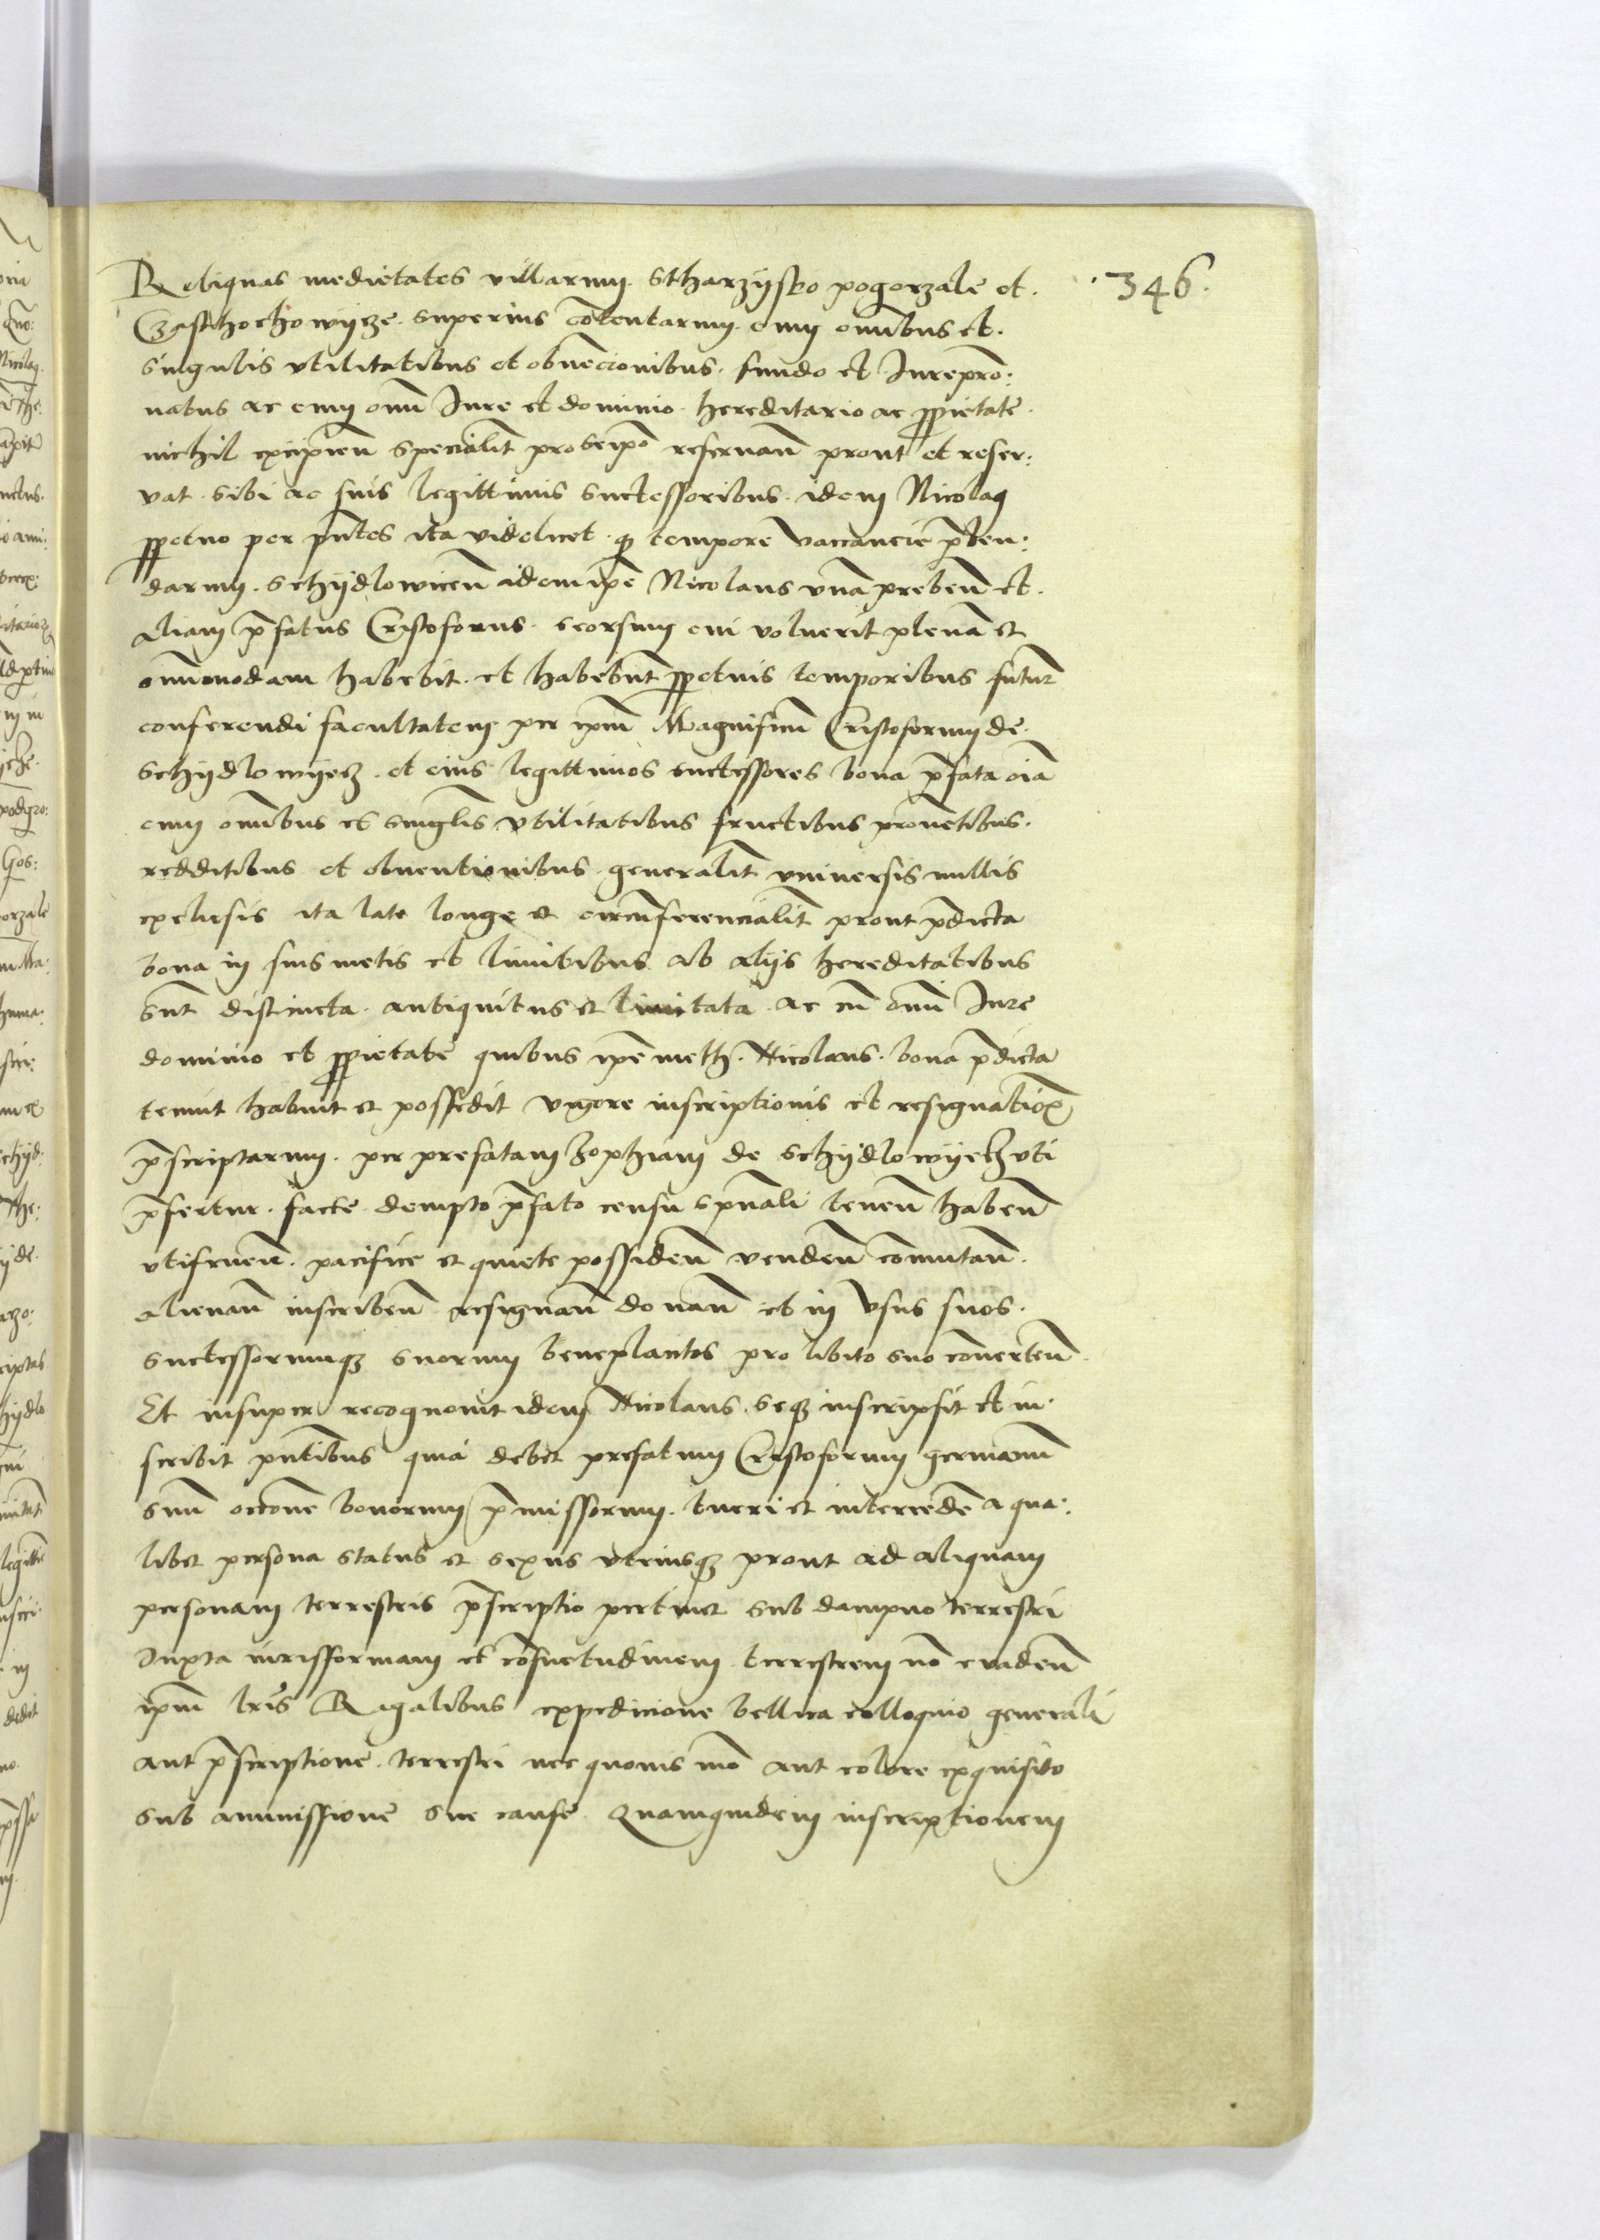 Reliquas medietates villarum Stharzijsko pogorzale et
·346·
Czasthochowijcze superius cōtentarum cum omībus et
singulis vtilitatibus et obvēcionibus fundo et Jurepro:
natus ac cum omī Jure et dominio hereditario ac ꝓprietate
nichil excipien̄ specialit̄ pro seip̄o reservan̄ prout et reser:
vat sibi ac suis legittimis suctessoribus idem Nicolaꝰ
ꝑpetuo per p̄ntes ita videlicet ꝙ tempore vaccancie p̄ben:
darum Schijdlowicen̄ idem ip̄e Nicolaus vnā preben̄ et
aliam p̄fatus Cristoforus seorsum cui voluerit plenā et
omīmodam habebit et habebūt ꝑpetuis temporibus futur̄
conferendi facultatem per ip̄m Magnificū Cristoforum de
Schijdlowijecz et eius legittimos suctessores bona p̄fata oīa
cum omībus et singlis vtilitatibus fructibus provētibus
redditibus et obventionibus generalit̄ vniversis nullis
exclusis ita late longe et circūferencialit̄ prout p̄dicta
bona in suis metis et limitibus ab alijs hereditatibus
sūt distincta antiquitus et limitata ac cū omī Jure
dominio et ꝓprietate quibus ip̄e meth Nicolaus bona p̄dicta
tenuit habuit et possedit vigore inscriptionis et resignationū
p̄scriptarum per prefatam Zophiam de Schijdlowijecz vti
p̄fertur facte dempto p̄fato censu sp̄uali tenen̄ haben̄
vtifruen̄ pacifice et quiete possiden̄ venden̄ cōmutan̄
alienan̄ inscriben̄ resignan̄ donan̄ et in vsus suos
suctessorumqꝫ suorum beneplacitos pro libito suo cōverten̄
Et insuper recognovit idem Nicolaus seqꝫ inscripsit et in
scribit p̄ntibus quia debet prefatum Cristoforum germanū
suū occōne bonorum p̄missorum tueri et intercedē a qua:
libet persona status et sexus vtriusqꝫ prout ad aliquam
personam terrestris p̄scriptio pertinet sub dampno terrestri
Juxta iurisformam et cōsuetudinem terrestrem nō evaden̄
ip̄m l̄ris Regalibus expedicione bellica colloquio generali
aut p̄scriptione terrestri nec quovis mō aut colore exquisito
sub ammissione sue cause Quamquidem inscriptionem